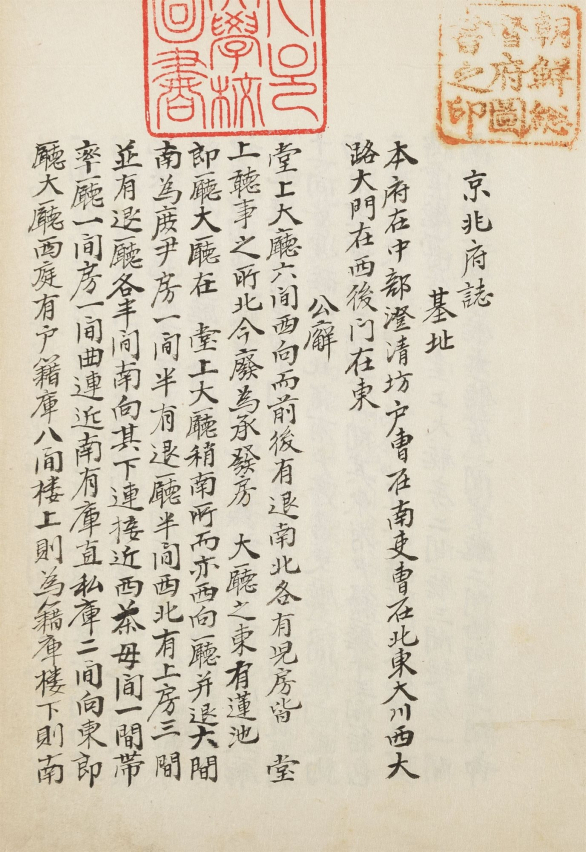 朝鮮総
督府圖
書之印
學校
圖書
京兆府誌
基址
本府在中部澄清坊户曹在南吏曹在北東大川西大
路大門在西後门在東
公廨
堂上大廳六间西向而前後有退南北各有児房皆 堂
上聽事之所北今廢為承發房 大廳之東有蓮池
郎廳大廳在 堂上大廳稍南所而亦西向廳并退六間
南為庶尹房一間半有退廳半间西北有上房三間
並有退廳各半间南向其下連接近西茶母间一間帯
率廳一间房一間曲連近南有庫直私庫二间向東郎
廳大廳西庭有户籍庫八间楼上則為籍庫樓下則南